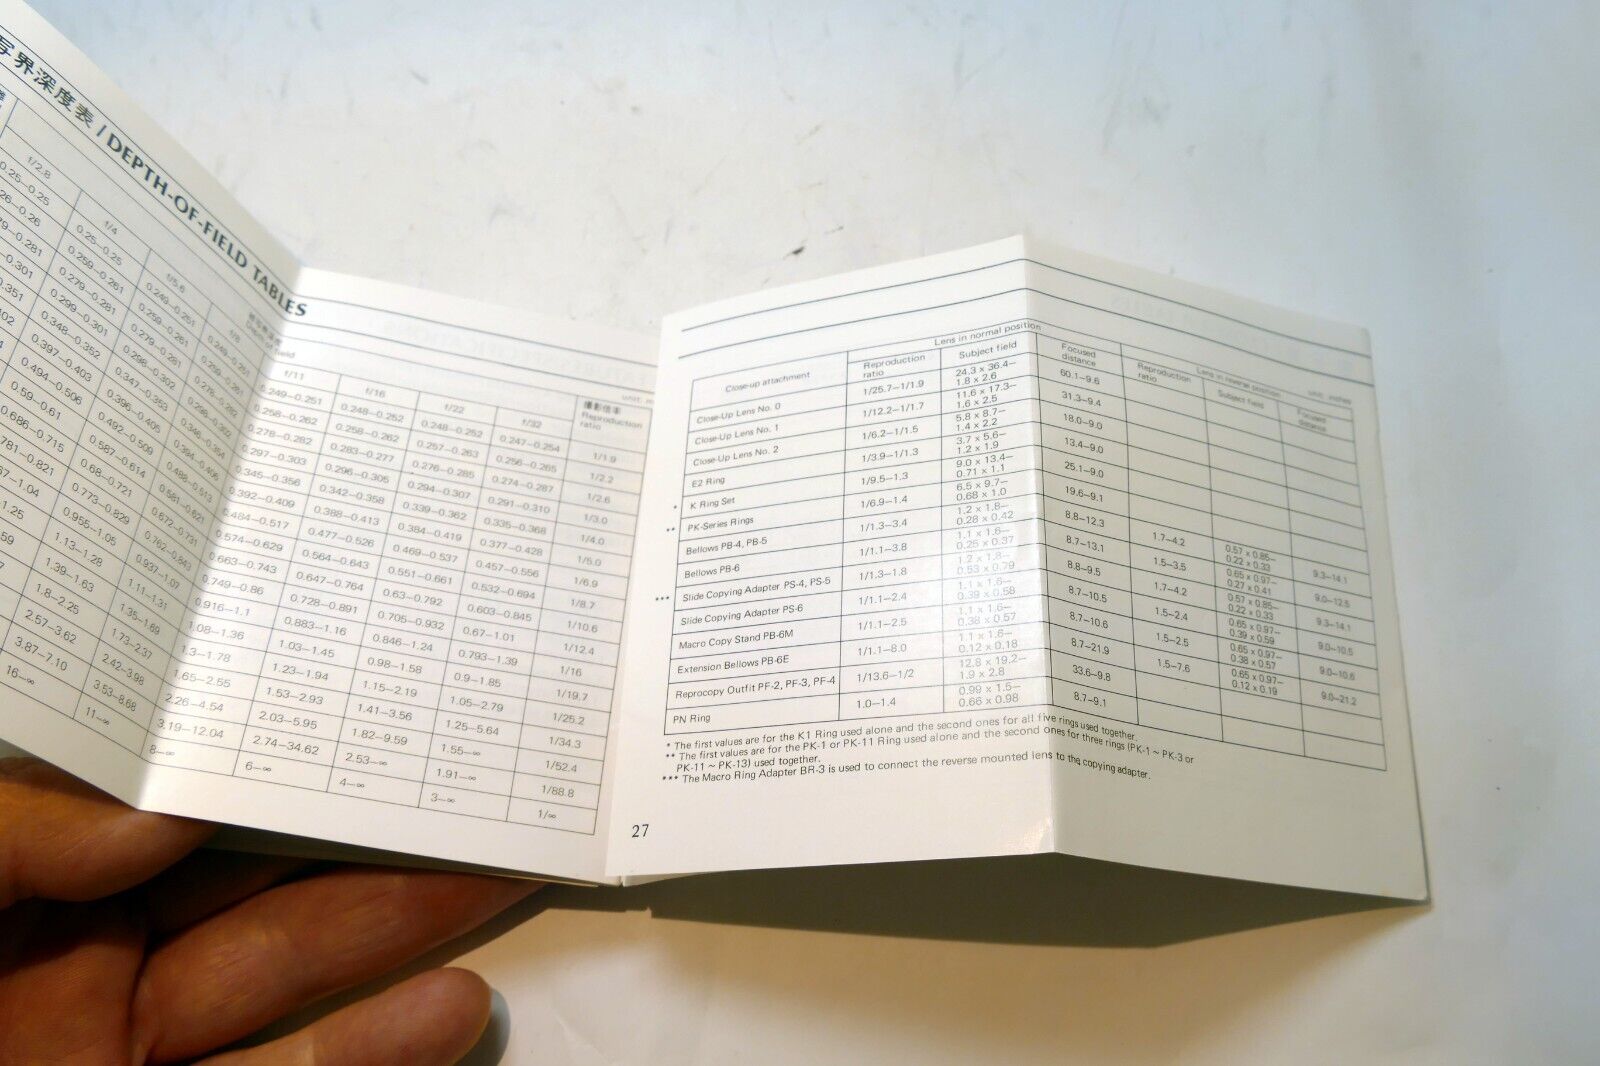 写界深度表 / DEPTH-OF-FIELD TABLES
f/2.8 f/4 f/5.6 f/8
0.25–0.25 0.25–0.25 0.249–0.251 0.249–0.251
0.259–0.261 0.259–0.261 0.259–0.261
0.279–0.281 0.279–0.281 0.278–0.282
0.299–0.301 0.298–0.302 0.298–0.302
0.348–0.352 0.347–0.353 0.346–0.354
0.397–0.403 0.396–0.405 0.394–0.406
0.494–0.506 0.492–0.509 0.488–0.513
0.59–0.61 0.587–0.614 0.581–0.621
0.686–0.715 0.68–0.721 0.672–0.731
0.781–0.821 0.773–0.829 0.762–0.843
0.955–1.05 0.937–1.07
1.13–1.28 1.11–1.31
1.39–1.63 1.35–1.69
1.8–2.25 1.73–2.37
2.57–3.62 2.42–3.98
3.87–7.10 3.53–8.68
16–∞ 11–∞
f/11 f/16 f/22 f/32 撮影倍率 Reproduction ratio
0.249–0.251 0.248–0.252 0.248–0.252 0.247–0.254 1/1.9
0.258–0.262 0.258–0.262 0.257–0.263 0.256–0.265 1/2.2
0.278–0.282 0.283–0.277 0.276–0.285 0.274–0.287 1/2.6
0.297–0.303 0.296–0.305 0.294–0.307 0.291–0.310 1/3.0
0.345–0.356 0.342–0.358 0.339–0.362 0.335–0.368 1/4.0
0.392–0.409 0.388–0.413 0.384–0.419 0.377–0.428 1/5.0
0.484–0.517 0.477–0.526 0.469–0.537 0.457–0.556 1/6.9
0.574–0.629 0.564–0.643 0.551–0.661 0.532–0.694 1/8.7
0.663–0.743 0.647–0.764 0.63–0.792 0.603–0.845 1/10.6
0.749–0.86 0.728–0.891 0.705–0.932 0.67–1.01 1/12.4
0.916–1.1 0.883–1.16 0.846–1.24 0.793–1.39 1/16
1.08–1.36 1.03–1.45 0.98–1.58 0.9–1.85 1/19.7
1.3–1.78 1.23–1.94 1.15–2.19 1.05–2.79 1/25.2
1.65–2.55 1.53–2.93 1.41–3.56 1.25–5.64 1/34.3
2.26–4.54 2.03–5.95 1.82–9.59 1.55–∞ 1/52.4
3.19–12.04 2.74–34.62 2.53–∞ 1.91–∞ 1/88.8
8–∞ 6–∞ 4–∞ 3–∞ 1/∞
Lens in normal position Lens in reverse position unit: inches
Close-up attachment Reproduction ratio Subject field Focused distance Reproduction ratio Subject field Focused distance
Close-Up Lens No. 0 1/25.7–1/1.9 24.3 x 36.4–1.8 x 2.6 60.1–9.6
Close-Up Lens No. 1 1/12.2–1/1.7 11.6 x 17.3–1.6 x 2.5 31.3–9.4
Close-Up Lens No. 2 1/6.2–1/1.5 5.8 x 8.7–1.4 x 2.2 18.0–9.0
E2 Ring 1/3.9–1/1.3 3.7 x 5.6–1.2 x 1.9 13.4–9.0
* K Ring Set 1/9.5–1.3 9.0 x 13.4–0.71 x 1.1 25.1–9.0
** PK-Series Rings 1/6.9–1.4 6.5 x 9.7–0.68 x 1.0 19.6–9.1
Bellows PB-4, PB-5 1/1.3–3.4 1.2 x 1.8–0.28 x 0.42 8.8–12.3 1.7–4.2 0.57 x 0.85–0.22 x 0.33 9.3–14.1
Bellows PB-6 1/1.1–3.8 1.1 x 1.6–0.25 x 0.37 8.7–13.1 1.5–3.5 0.65 x 0.97–0.27 x 0.41 9.0–12.5
*** Slide Copying Adapter PS-4, PS-5 1/1.3–1.8 1.2 x 1.8–0.53 x 0.79 8.8–9.5 1.7–4.2 0.57 x 0.85–0.22 x 0.33 9.3–14.1
Slide Copying Adapter PS-6 1/1.1–2.4 1.1 x 1.6–0.39 x 0.58 8.7–10.5 1.5–2.4 0.65 x 0.97–0.39 x 0.59 9.0–10.5
Macro Copy Stand PB-6M 1/1.1–2.5 1.1 x 1.6–0.38 x 0.57 8.7–10.6 1.5–2.5 0.65 x 0.97–0.38 x 0.57 9.0–10.6
Extension Bellows PB-6E 1/1.1–8.0 1.1 x 1.6–0.12 x 0.18 8.7–21.9 1.5–7.6 0.65 x 0.97–0.12 x 0.19 9.0–21.2
Reprocopy Outfit PF-2, PF-3, PF-4 1/13.6–1/2 12.8 x 19.2–1.9 x 2.8 33.6–9.8
PN Ring 1.0–1.4 0.99 x 1.5–0.66 x 0.98 8.7–9.1
* The first values are for the K1 Ring used alone and the second ones for all five rings used together.
** The first values are for the PK-1 or PK-11 Ring used alone and the second ones for three rings (PK-1 ~ PK-3 or
PK-11 ~ PK-13) used together.
*** The Macro Ring Adapter BR-3 is used to connect the reverse mounted lens to the copying adapter.
27